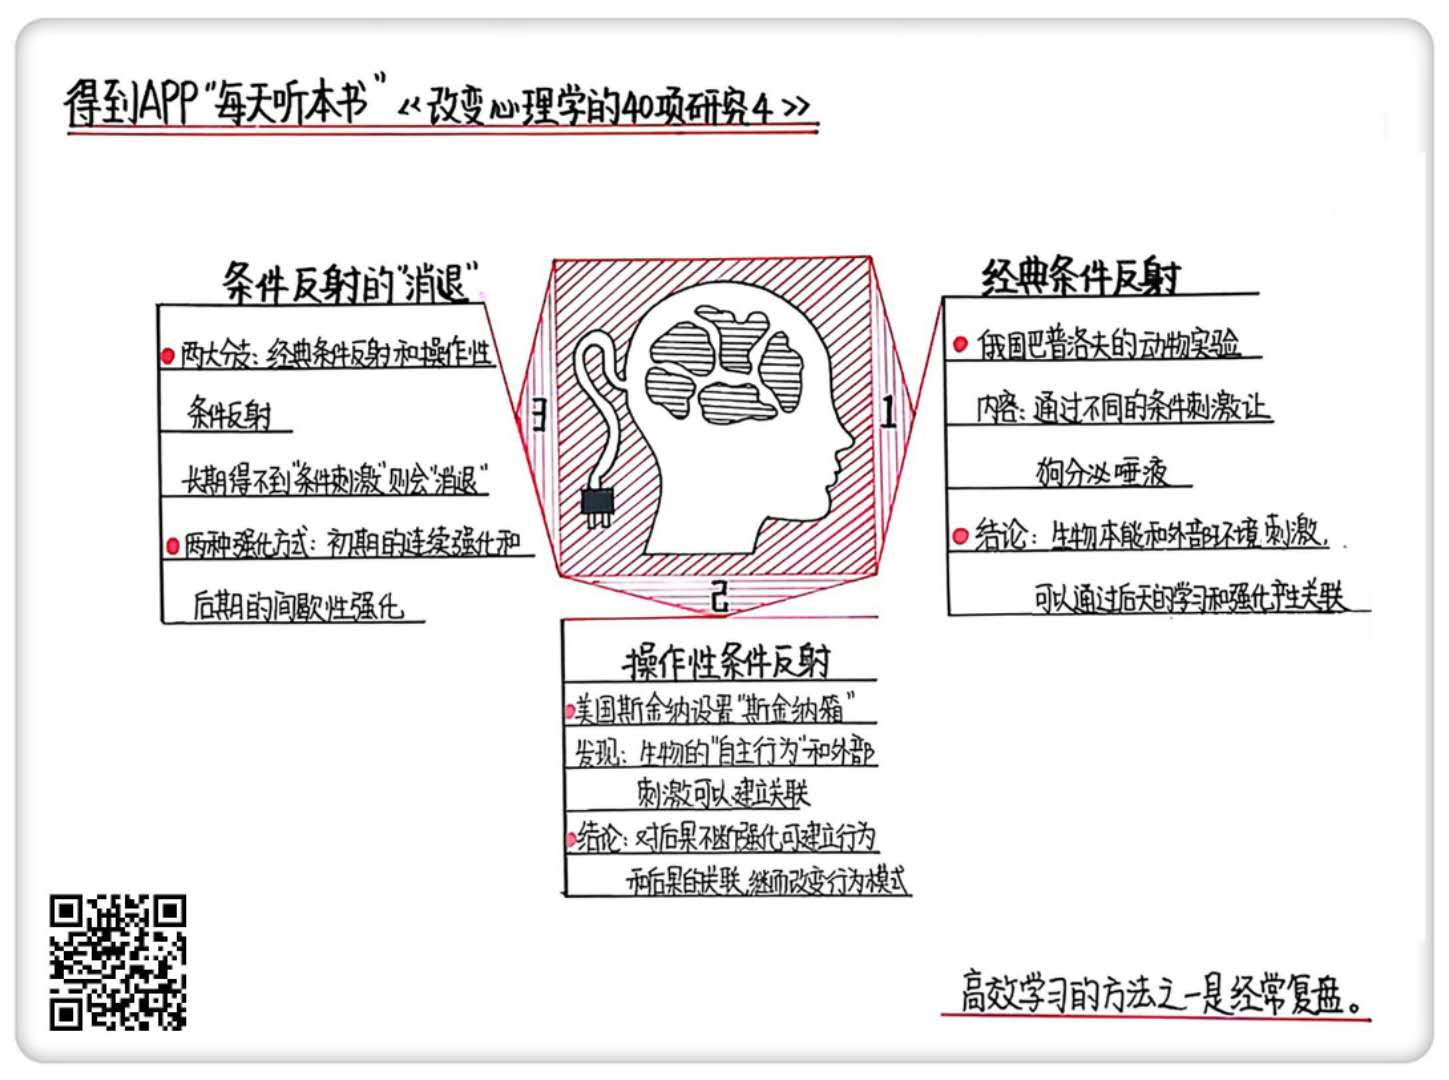 得到APP“每天听本书”《改变心理学的40项研究4》
1
经典条件反射
俄国巴普洛夫的动物实验
内容：通过不同的条件刺激让
狗分泌唾液
结论：生物本能和外部环境刺激，
可以通过后天的学习和强化产生关联
2
操作性条件反射
美国斯金纳设置“斯金纳箱”
发现：生物的“自主行为”和外部
刺激可以建立关联
结论：对后果不断强化可建立行为
和后果的关联，继而改变行为模式
3
条件反射的“消退”
两大分支：经典条件反射和操作性
条件反射
长期得不到“条件刺激”则会“消退”
两种强化方式：初期的连续强化和
后期的间歇性强化
高效学习的方法之一是经常复盘。